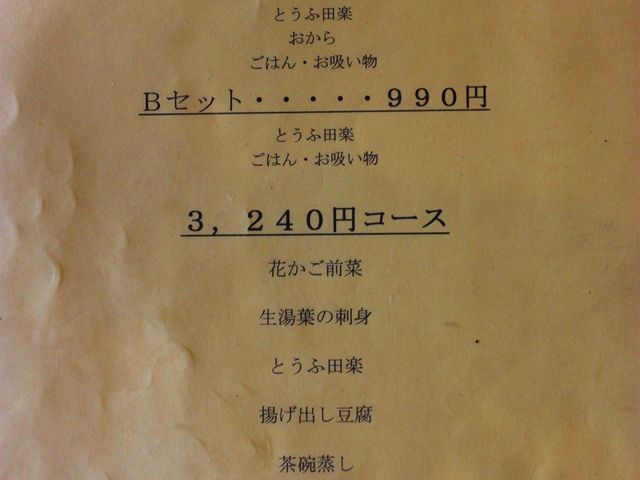 とうふ田楽
おから
ごはん・お吸い物
Ｂセット・・・・・９９０円
とうふ田楽
ごはん・お吸い物
３，２４０円コース
花かご前菜
生湯葉の刺身
とうふ田楽
揚げ出し豆腐
茶碗蒸し